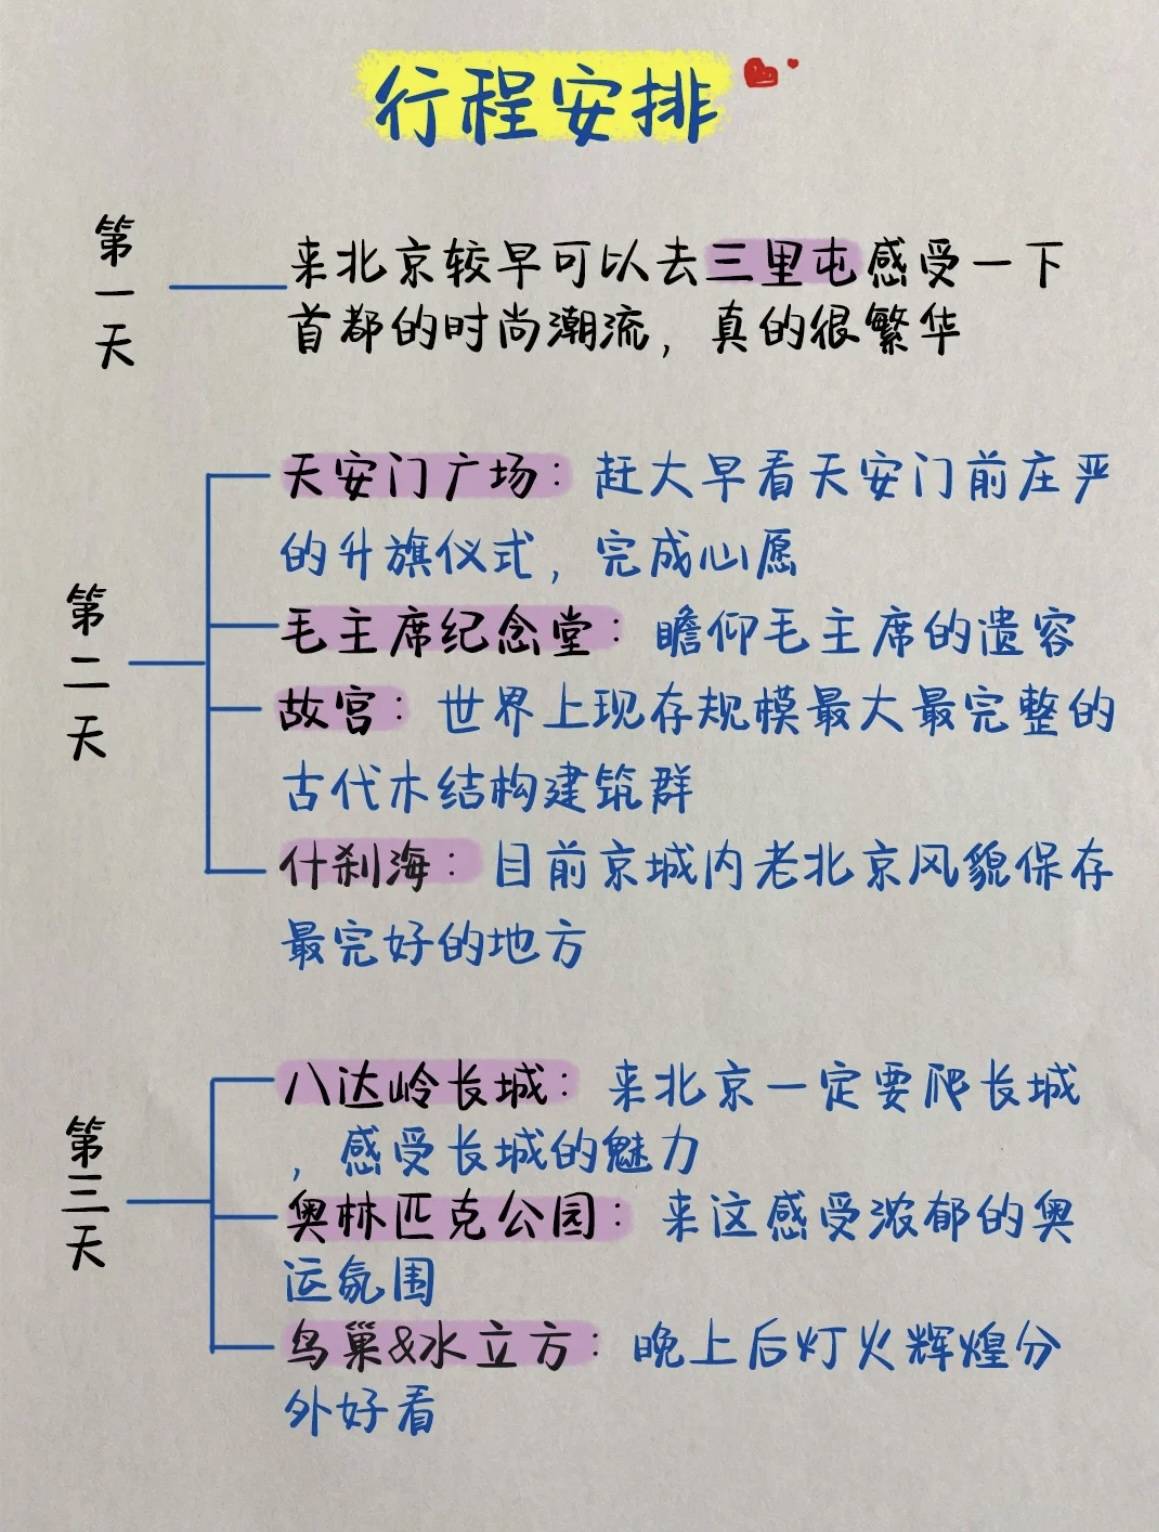 行程安排
第一天
来北京较早可以去三里屯感受一下
首都的时尚潮流，真的很繁华
第二天
天安门广场：赶大早看天安门前庄严
的升旗仪式，完成心愿
毛主席纪念堂：瞻仰毛主席的遗容
故宫：世界上现存规模最大最完整的
古代木结构建筑群
什刹海：目前京城内老北京风貌保存
最完好的地方
第三天
八达岭长城：来北京一定要爬长城
，感受长城的魅力
奥林匹克公园：来这感受浓郁的奥
运氛围
鸟巢&水立方：晚上后灯火辉煌分
外好看